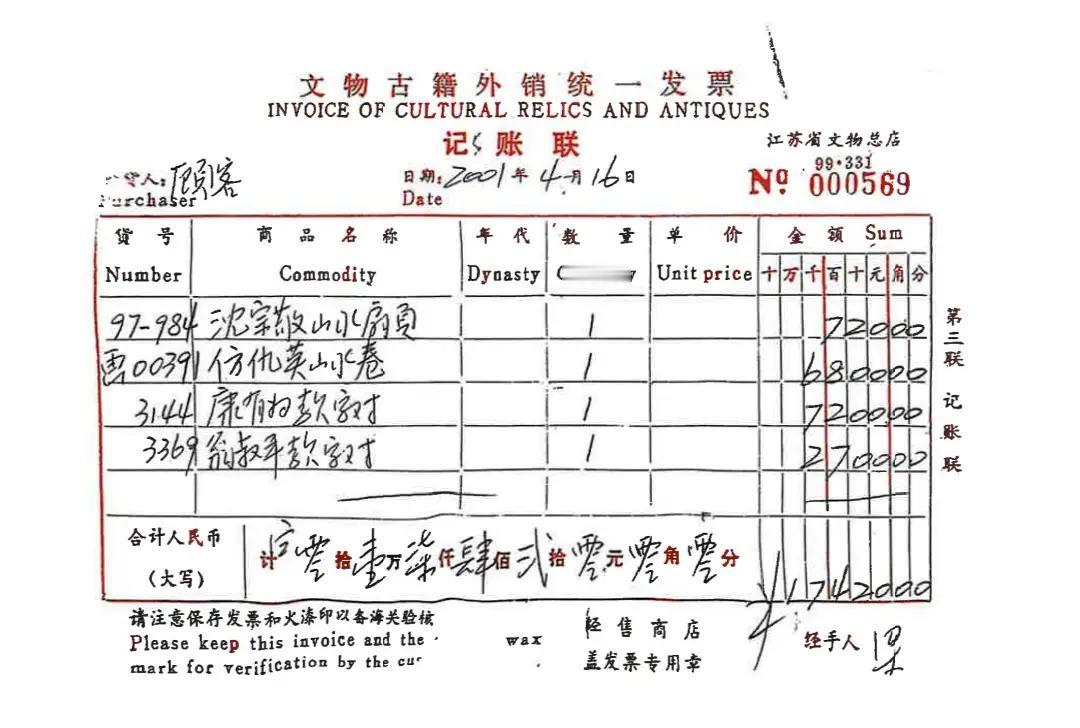 文物古籍外销统一发票
INVOICE OF CULTURAL RELICS AND ANTIQUES
记账联
江苏省文物总店
99·331
货人：顾客 日期：2001年4月16日 Nº 000569
Purchaser Date
货号 商品名称 年代 数量 单价 金额 Sum
Number Commodity Dynasty Unit price 十万千百十元角分
97-984 沈宗敬山水扇页 1 72000
00391 仿仇英山水卷 1 680000
3144 康有为款字对 1 720000
3369 翁叔平款字对 1 270000
合计人民币
(大写) 计 零拾壹万柒仟肆佰贰拾零元零角零分 ¥1742000
第三联 记账联
请注意保存发票和火漆印以备海关验核
Please keep this invoice and the wax
mark for verification by the cu
经售商店
盖发票专用章
经手人 梁